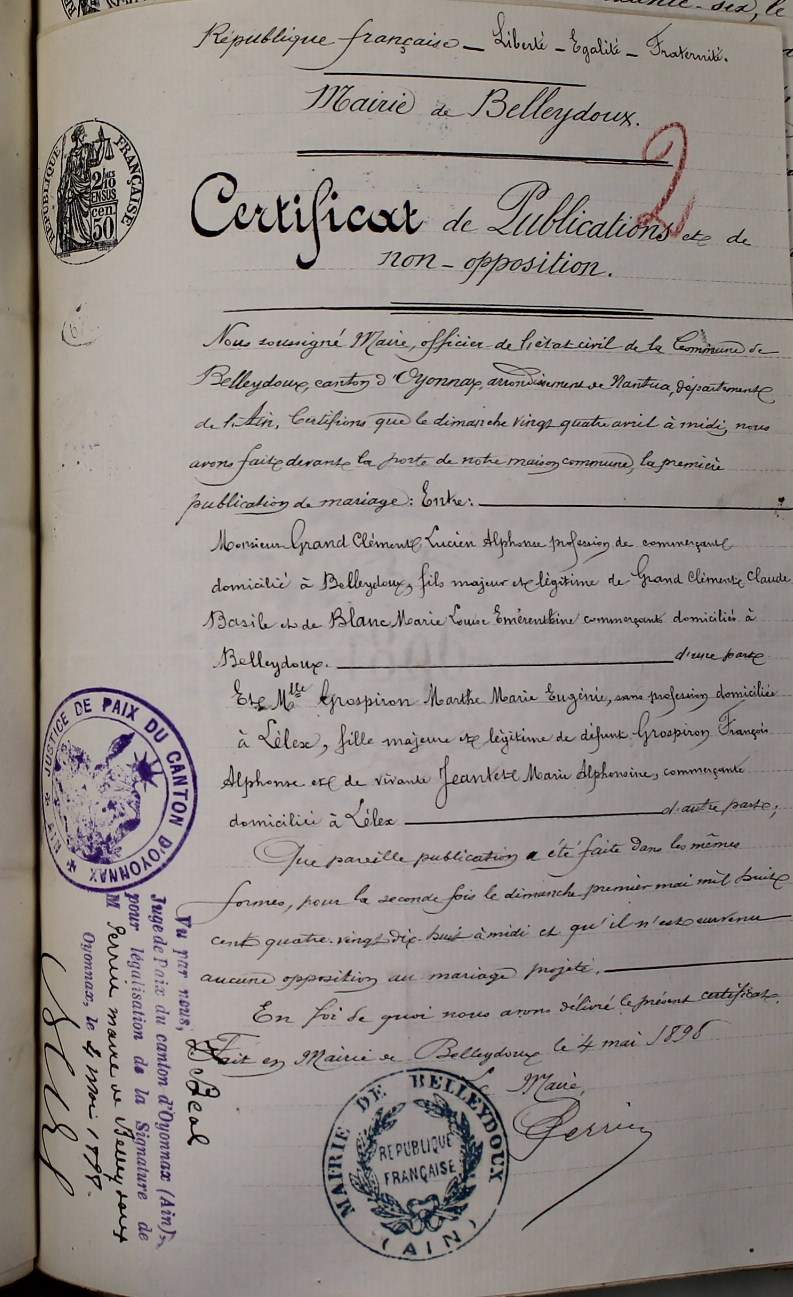 République française _ Liberté _ Egalité _ Fraternité.
Mairie de Belleydoux.
2
RÉPUBLIQUE FRANÇAISE
2/10 EN SUS
50 cen
Certificat de Publications et de
non-opposition.
Nous soussigné Maire, officier de l'état civil de la Commune de
Belleydoux, canton d'Oyonnax, arrondissement de Nantua, département
de l'Ain, Certifions que le dimanche vingt quatre avril à midi, nous
avons faite devant la porte de notre maison commune, la première
publication de mariage: Entre:
Monsieur Grand Clément Lucien Alphonse profession de commerçant
domicilié à Belleydoux, fils majeur et légitime de Grand Clément Claude
Basile et de Blanc Marie Louise Emérenthine commerçants domiciliés à
Belleydoux. d'une part
Et Mlle Grospiron Marthe Marie Eugénie, sans profession domiciliée
à Lélex, fille majeure et légitime de défunt Grospiron François
Alphonse et de vivante Jeantet Marie Alphonsine, commerçante
domiciliée à Lélex d'autre part;
Que pareille publication a été faite dans les mêmes
formes, pour la seconde fois le dimanche premier mai mil huit
cent quatre-vingt dix-huit à midi et qu'il n'est survenu
aucune opposition au mariage projeté.
En foi de quoi nous avons délivré le présent certificat.
Fait en Mairie de Belleydoux le 4 mai 1898
Le Maire,
Perrin
MAIRIE DE BELLEYDOUX
RÉPUBLIQUE
FRANÇAISE
(AIN)
JUSTICE DE PAIX DU CANTON D'OYONNAX
* AIN *
Vu par nous,
Juge de Paix du canton d'Oyonnax (Ain),
pour légalisation de la Signature de
M Perrin maire de Belleydoux
Oyonnax, le 4 Mai 1898.